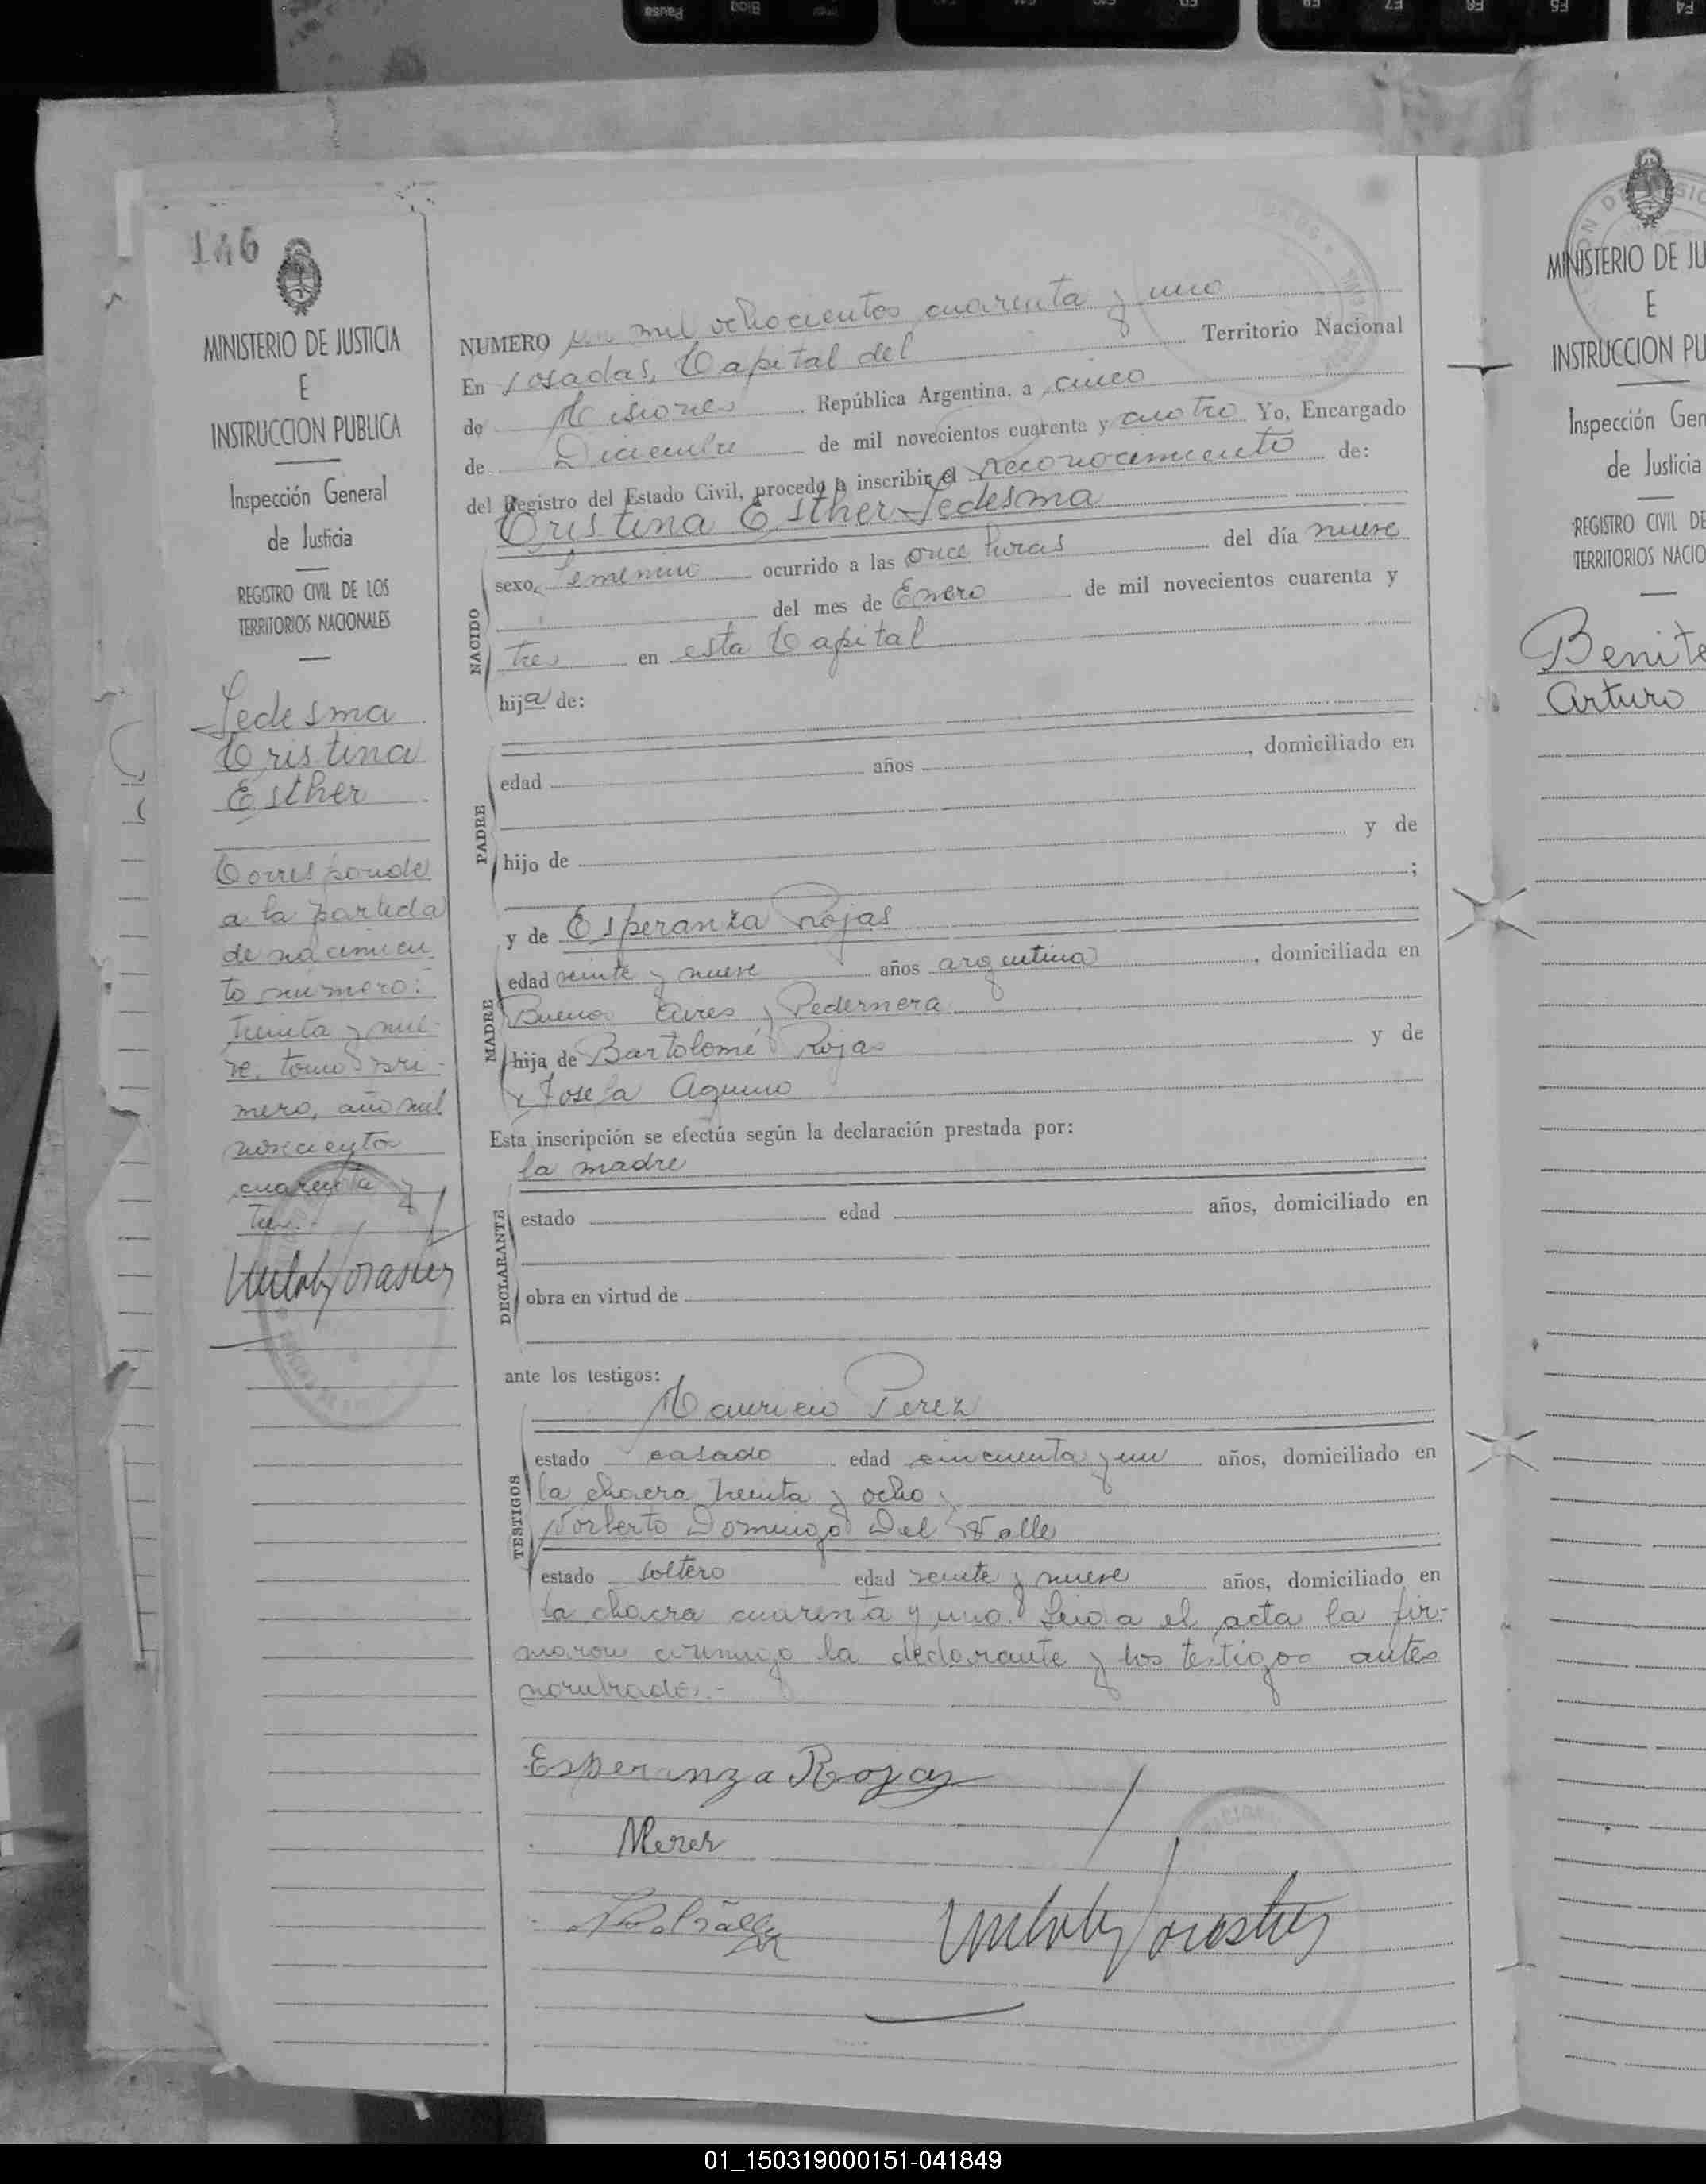 146
MINISTERIO DE JUSTICIA
E
INSTRUCCION PUBLICA
Inspección General
de Justicia
REGISTRO CIVIL DE LOS
TERRITORIOS NACIONALES
Ledesma
Cristina
Esther
Corresponde
a la partida
de nacimien
to numero:
treinta y nue-
ve, tomo pri-
mero, año mil
novecientos
cuarenta y
tres.-
NUMERO un mil ochocientos cuarenta y uno
En Posadas, Capital del Territorio Nacional
de Misiones República Argentina, a cinco
de Diciembre de mil novecientos cuarenta y cuatro Yo, Encargado
del Registro del Estado Civil, procedo a inscribir el reconocimiento de:
Cristina Esther Ledesma
NACIDO
sexo femenino ocurrido a las once horas del día nueve
del mes de Enero de mil novecientos cuarenta y
tres en esta Capital
hija de:
PADRE
edad años , domiciliado en
hijo de y de
;
y de Esperanza Rojas
MADRE
edad veinte y nueve años argentina , domiciliada en
Buenos Aires y Pedernera
hija de Bartolomé Rojas y de
Josefa Aquino
Esta inscripción se efectúa según la declaración prestada por:
la madre
DECLARANTE
estado edad años, domiciliado en
obra en virtud de
ante los testigos:
Mauricio Perez
TESTIGOS
estado casado edad cincuenta y un años, domiciliado en
la chacra treinta y ocho y
Norberto Domingo Del Valle
estado soltero edad veinte y nueve años, domiciliado en
la chacra cuarenta y uno. Leida el acta la fir-
maron conmigo la declarante y los testigos antes
nombrados.-
Esperanza Rojas
MPerez
MINISTERIO DE JU
E
INSTRUCCION PU
Inspección Gen
de Justicia
REGISTRO CIVIL DE
TERRITORIOS NACIO
Benite
Arturo
01_150319000151-041849